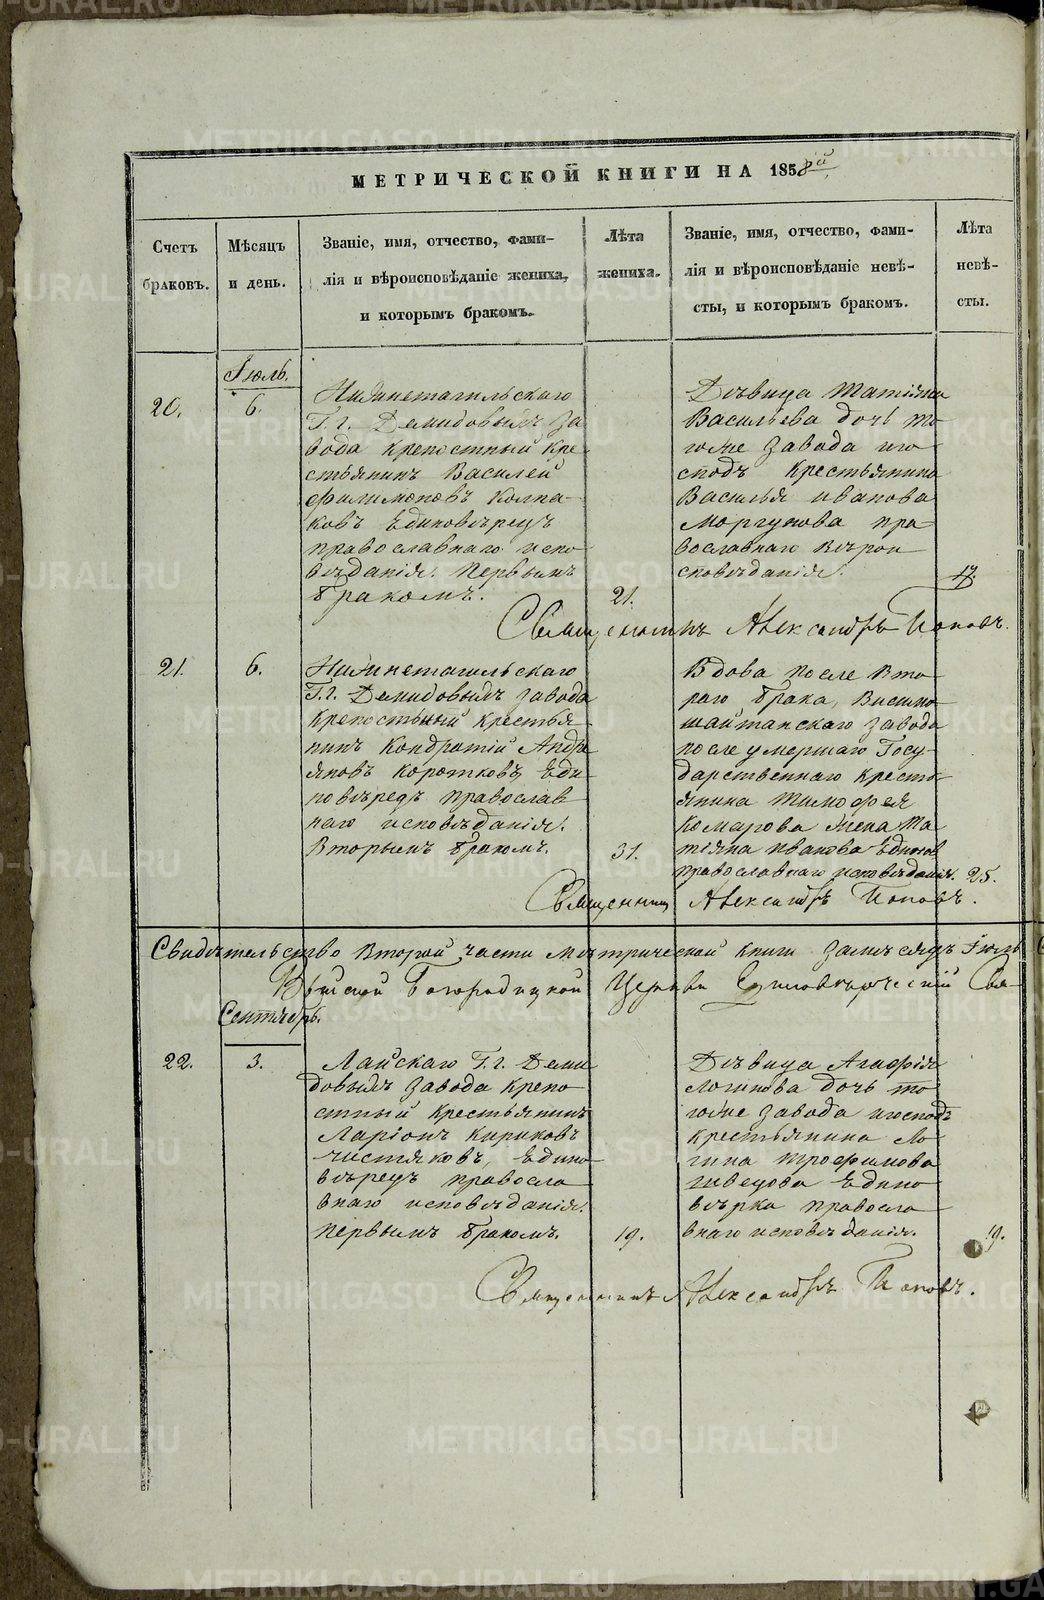 МЕТРИЧЕСКОЙ КНИГИ НА 1858й
Счетъ браковъ.
Мѣсяцъ и день.
Званіе, имя, отчество, фами-
лія и вѣроисповѣданіе жениха,
и которымъ бракомъ.
Лѣта жениха.
Званіе, имя, отчество, фами-
лія и вѣроисповѣданіе невѣ-
сты, и которымъ бракомъ.
Лѣта невѣ-
сты.
Іюль.
20.
6.
Нижнетагильскаго
Г. г. Демидовыхъ за
вода крепостный кре
стьянинъ Василей
Филимоновъ Колпа-
ковъ Единовѣрецъ
православнаго испо
вѣданія. Первымъ
бракомъ.
21.
Дѣвица Татіяна
Васильева дочь то
гоже завода и го
сподъ крестьянина
Василья Иванова
Моргунова пра-
вославнаго вѣрои
сповѣданія.
17.
Священникъ Александръ Поповъ.
21.
6.
Нижнетагильскаго
Г. г. Демидовыхъ завода
крепостный крестья
нинъ Кондратій Андре
яновъ Коротковъ Еди-
новѣрецъ православ
наго исповѣданія.
Вторымъ бракомъ.
31.
Вдова после вто-
раго брака, Висимо
шайтанскаго завода
после умершаго Госу-
дарственнаго кресть-
янина Тимофея
Комарова жена Та
тіяна Иванова Единов
православнаго исповѣданія.
25.
Священник Александръ Поповъ.
Свидѣтельство Второй части метрической книги за мѣсяцъ Іюль
Выйской Богородицкой Церкви Единовѣрческій Свя-
Сентябрь.
22.
3.
Лайскаго Г. г. Деми
довыхъ завода крепо
стный крестьянинъ
Ларіонъ Кириковъ
Чистяковъ, Едино
вѣрецъ правосла
внаго исповѣданія.
Первымъ бракомъ.
19.
Дѣвица Агафія
Логинова дочь то
гоже завода и господъ
крестьянина Ло
гина Трофимова
Швецова Едино
вѣрка правосла
внаго исповѣданія.
19.
Священникъ Александръ Поповъ.
METRIKI.GASO-URAL.RU